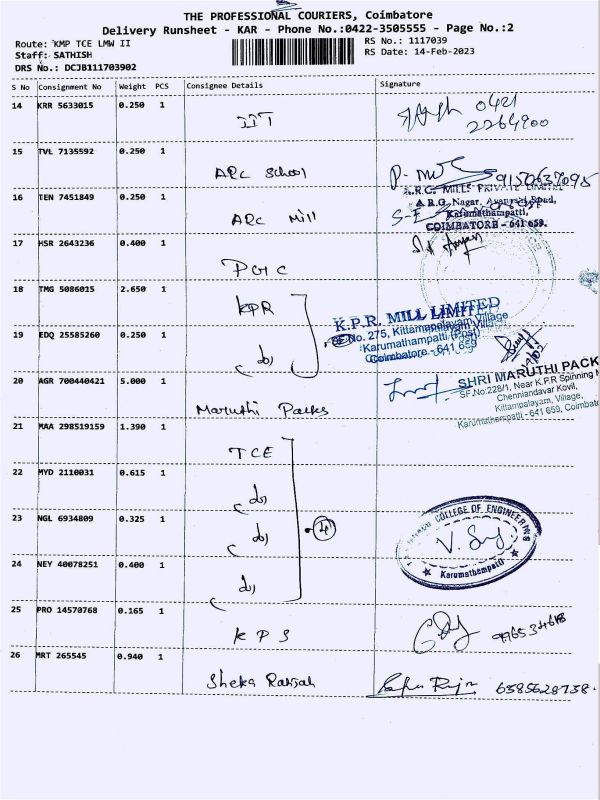 THE PROFESSIONAL COURIERS, Coimbatore
Delivery Runsheet - KAR - Phone No.:0422-3505555 - Page No.:2
Route: KMP TCE LMW II
RS No.: 1117039
Staff: SATHISH
RS Date: 14-Feb-2023
DRS No.: DCJB111703902
S No Consignment No Weight PCS Consignee Details Signature
14 KRR 5633015 0.250 1
IIT
0421
2264900
15 TVL 7135592 0.250 1
ARC School
9150637095
16 TEN 7451849 0.250 1
ARC Mill
A.R.C. MILLS PRIVATE LIMITED
A.R.G. Nagar, Avanashi Road,
Karumathampatti,
COIMBATORE - 641 659.
17 HSR 2643236 0.400 1
18 TMG 5086015 2.650 1
KPR
K.P.R. MILL LIMITED
SF.No. 275, Kittampalayam Village
Karumathampatti (Post)
Coimbatore - 641 659
19 EDQ 25585260 0.250 1
do
20 AGR 700440421 5.000 1
Maruthi Packs
SHRI MARUTHI PACK
SF.No:228/1, Near K.P.R Spinning M
Chenniandavar Kovil,
Kittampalayam, Village,
Karumathampatti - 641 659, Coimbato
21 MAA 298519159 1.390 1
TCE
22 MYD 2110031 0.615 1
do
23 NGL 6934809 0.325 1
do
4
COLLEGE OF ENGINEERING
Karumathampatti
24 NEY 40078251 0.400 1
do
25 PRO 14570768 0.165 1
KPS
26 MRT 265545 0.940 1
6385628738